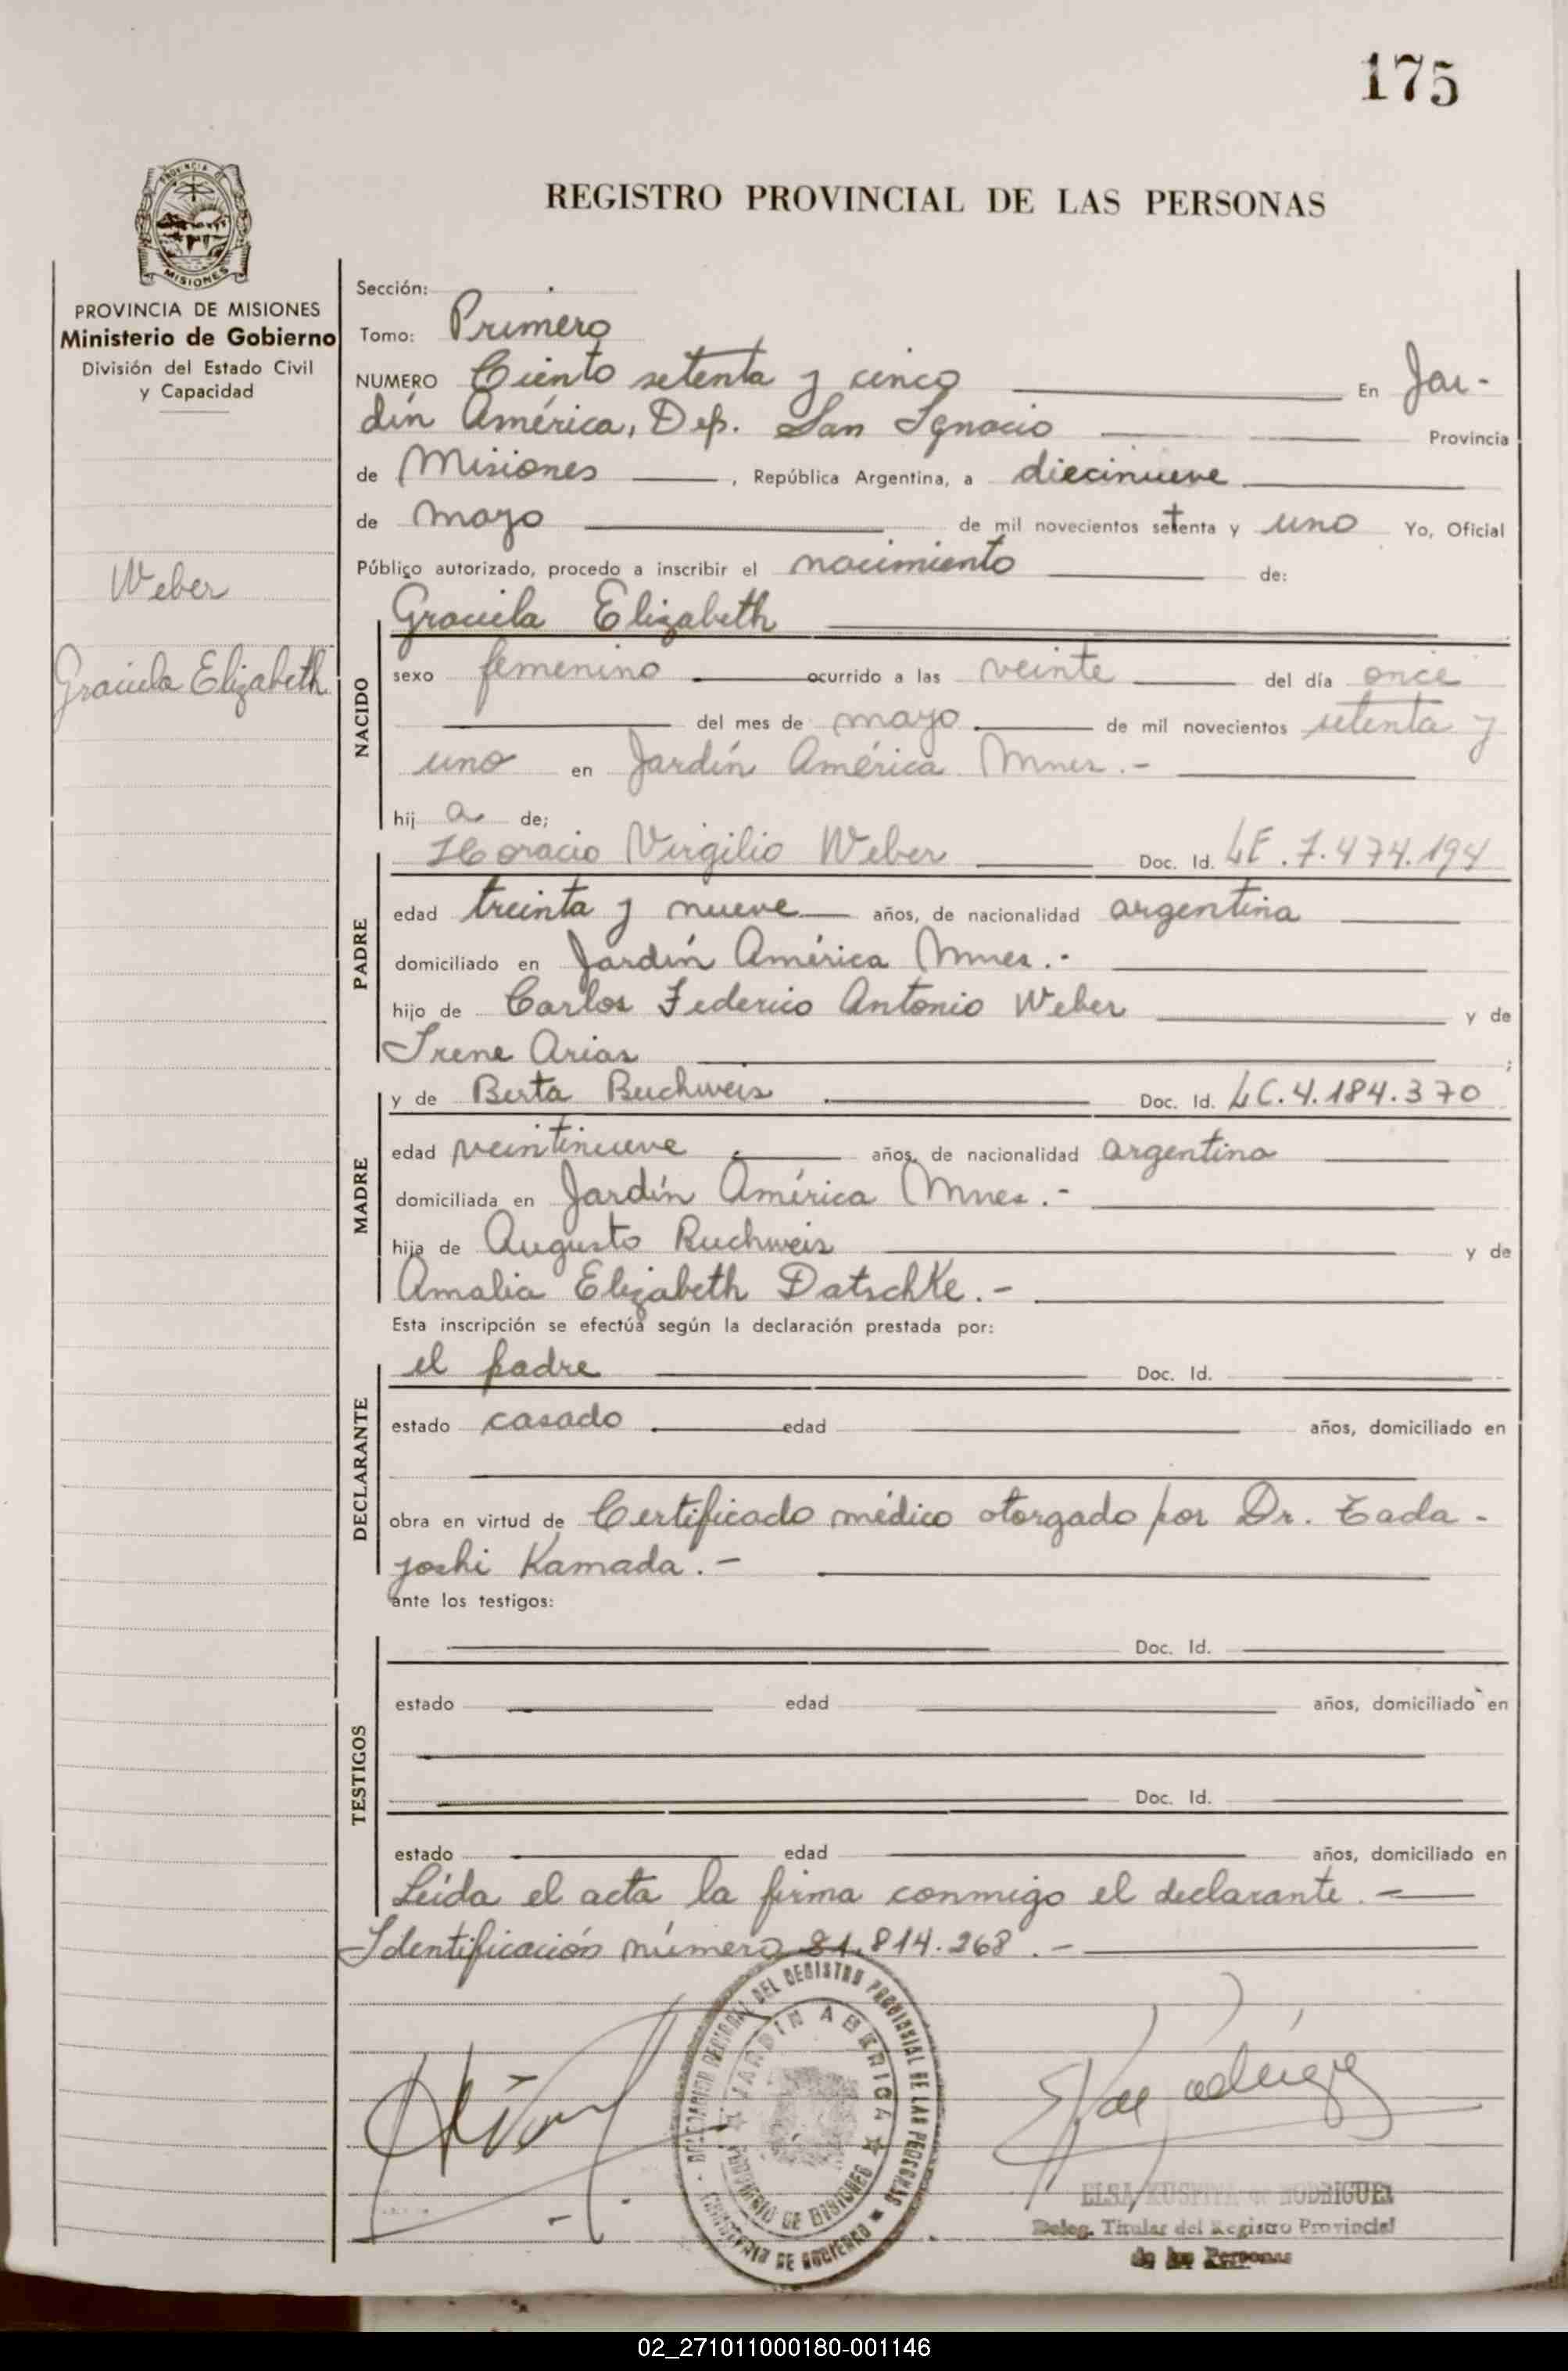 175
REGISTRO PROVINCIAL DE LAS PERSONAS
PROVINCIA DE MISIONES
Ministerio de Gobierno
División del Estado Civil
y Capacidad
Weber
Graciela Elizabeth
Sección:
Tomo: Primero
NUMERO Ciento setenta y cinco En Jar-
dín América, Dep. San Ignacio Provincia
de Misiones, República Argentina, a diecinueve
de mayo de mil novecientos setenta y uno Yo, Oficial
Público autorizado, procedo a inscribir el nacimiento de:
NACIDO
Graciela Elizabeth
sexo femenino ocurrido a las veinte del día once
del mes de mayo de mil novecientos setenta y
uno en Jardín América Mnes.-
hij a de;
PADRE
Horacio Virgilio Weber Doc. Id. LE.7.474.194
edad treinta y nueve años, de nacionalidad argentina
domiciliado en Jardín América Mnes.-
hijo de Carlos Federico Antonio Weber y de
Irene Arias ;
MADRE
y de Berta Ruchweis Doc. Id. LC.4.184.370
edad veintinueve años, de nacionalidad argentina
domiciliada en Jardín América Mnes.-
hija de Augusto Ruchweis y de
Amalia Elizabeth Datschke.-
Esta inscripción se efectúa según la declaración prestada por:
DECLARANTE
el padre Doc. Id.
estado casado edad años, domiciliado en
obra en virtud de Certificado médico otorgado por Dr. Tada-
yoshi Kamada.-
ante los testigos:
TESTIGOS
Doc. Id.
estado edad años, domiciliado en
Doc. Id.
estado edad años, domiciliado en
Leída el acta la firma conmigo el declarante.-
Identificación número 21.814.268.-
JARDIN AMERICA
PROVINCIA DE MISIONES
MINISTERIO DE GOBIERNO
ELSA de RODRIGUEZ
Deleg. Titular del Registro Provincial
de las Personas
02_271011000180-001146